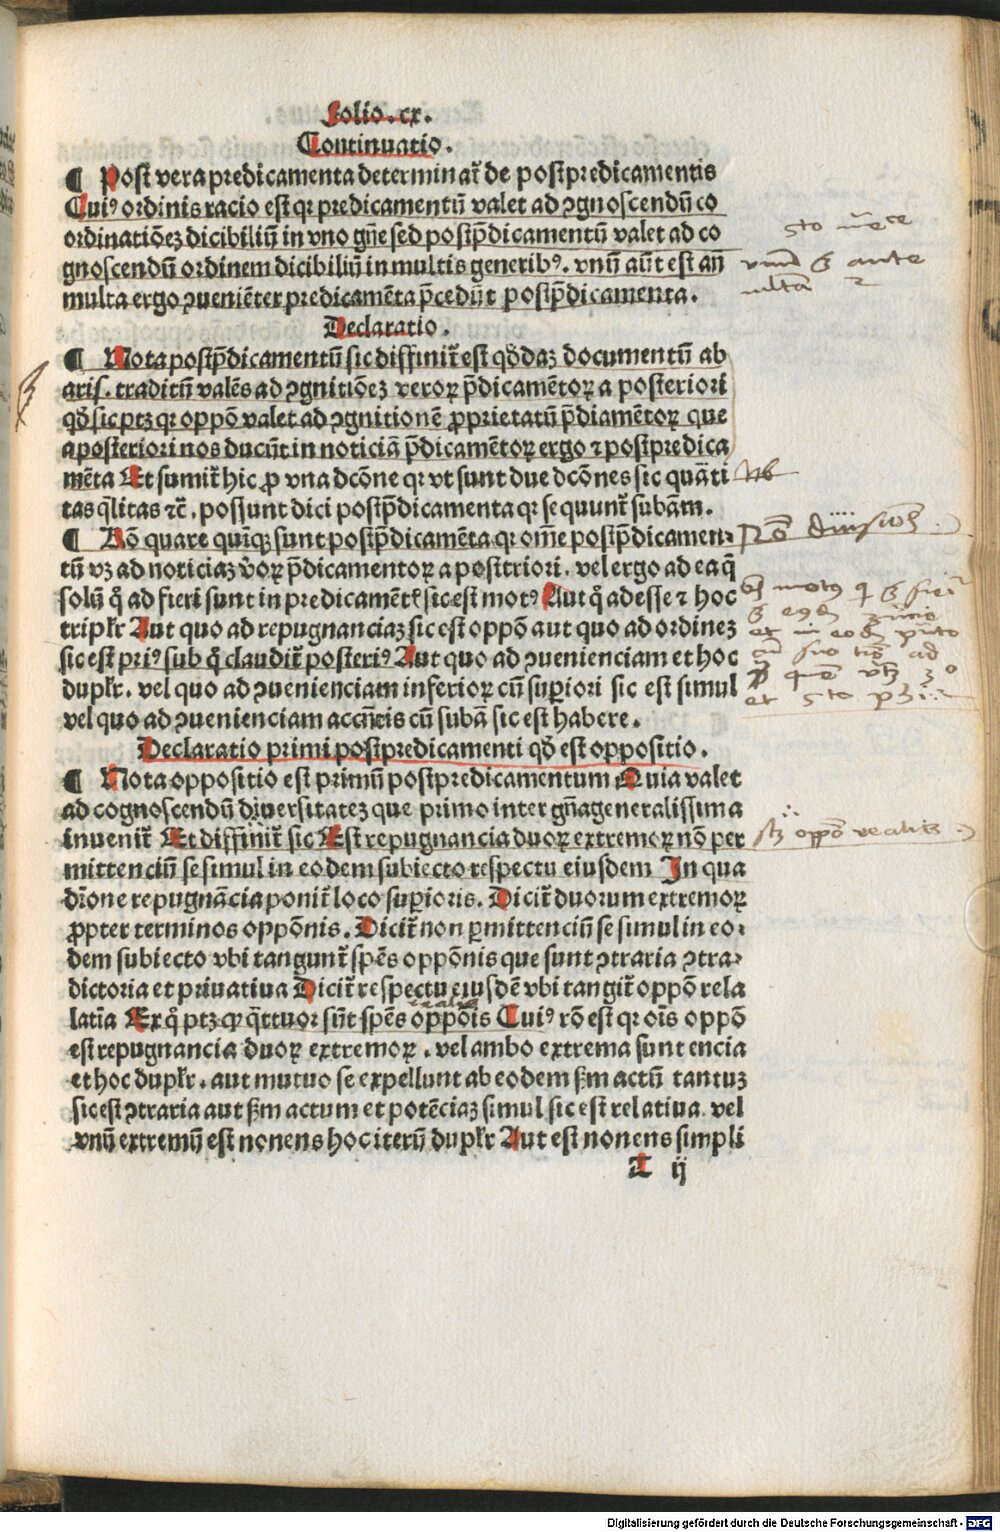 Folio. cx.
Continuatio.
¶ Post vera predicamenta determinat᷑ de postpredicamentis
Cuiꝰ ordinis racio est qꝛ predicamentū valet ad ꝯgnoscendū co
ordinatiōeꝫ dicibiliū in vno gn̄e sed postp̄dicamentū valet ad co
gnoscendū ordinem dicibiliū in multis generibꝰ. vnū aūt est an̄
multa ergo ꝯueniēter predicamēta p̄cedūt postp̄dicamenta.
Declaratio.
¶ Nota postp̄dicamentū sic diffinit᷑ est qd̄daꝫ documentū ab
aris. traditū valēs ad ꝯgnitiōeꝫ veroꝝ p̄dicamētoꝝ a posteriori
qd̄ sic ptꝫ qꝛ oppō valet ad ꝯgnitionē ꝓprietatū p̄diamētoꝝ que
a posteriori nos ducūt in noticiā p̄dicamētoꝝ ergo ⁊ postpredica
mēta Et sumit᷑ hic ꝓ vna dcōne qꝛ vt sunt due dcōnes sic quāti
tas q̄litas ⁊c̄. possunt dici postp̄dicamenta qꝛ sequunt᷑ subam̄.
¶ Rō quare quīqꝫ sunt postp̄dicamēta qꝛ om̄e postp̄dicamen⸗
tū vꝫ ad noticiaꝫ v̄oꝝ p̄dicamentoꝝ a positriori. vel ergo ad ea q̄
solū q̊ ad fieri sunt in predicamētꝭ sic est motꝰ Aut q̊ ad esse ⁊ hoc
triplr̄ Aut quo ad repugnanciaꝫ sic est oppō aut quo ad ordineꝫ
sic est priꝰ sub q̊ claudit᷑ posteriꝰ Aut quo ad ꝯuenienciam et hoc
duplr̄. vel quo ad ꝯuenienciam inferioꝝ cū suꝑiori sic est simul
vel quo ad ꝯuenienciam accn̄cis cū subā sic est habere.
Declaratio primi postpredicamenti qd̄ est oppositio.
¶ Nota oppositio est primū postpredicamentum Quia valet
ad cognoscendū diuersitateꝫ que primo inter gn̄a generalissima
inuenit᷑ Et diffinit᷑ sic Est repugnancia duoꝝ extremoꝝ nō per
mittenciū se simul in eodem subiecto respectu eiusdem In qua
dr̄one repugnācia ponit᷑ loco suꝑioris. Dicit᷑ duorum extremoꝝ
ꝓpter terminos oppōnis. Dicit᷑ non ꝑmittenciū se simul in eo⸗
dem subiecto vbi tangunt᷑ spēs oppōnis que sunt ꝯtraria ꝯtra⸗
dictoria et priuatiua Dicit᷑ respectu eiusdē vbi tangit᷑ oppō rela
latīa Ex q̊ ptꝫ ꝙ q̄ttuor sūt spēs oppōis Cuiꝰ rō est qꝛ oīs oppō
est repugnancia duoꝝ extremoꝝ. vel ambo extrema sunt encia
et hoc duplr̄. aut mutuo se expellunt ab eodem ẜm actū tantuꝫ
sic est ꝯtraria aut ẜm actum et potēciaꝫ simul sic est relatiua. vel
vnū extremū est nonens hoc iterū duplr̄ Aut est nonens simpli
T ij
Digitalisierung gefördert durch die Deutsche Forschungsgemeinschaft - DFG